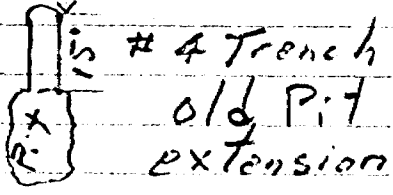 # 4 Trench
old Pit
extension